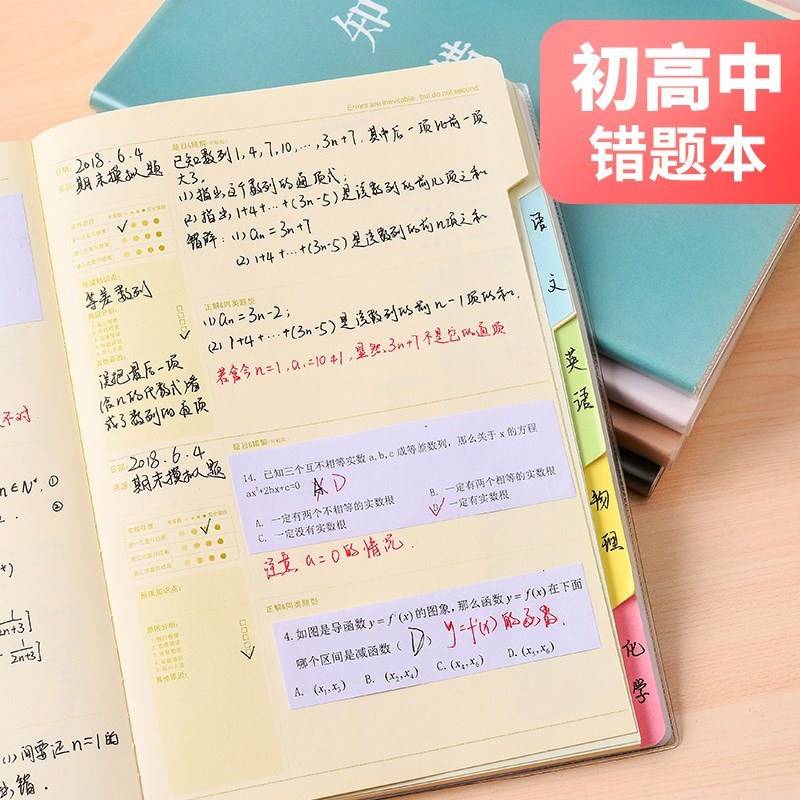 知
错
初高中
错题本
Errors are inevitable, but do not second.
日期:
2018.6.4
来源:
期末模拟题
题目&错解
已知数列1,4,7,10,…,3n+7,其中后一项比前一项
大3.
(1)指出这个数列的通项式;
(2)指出1+4+…+(3n-5)是该数列的前几项之和
错解:(1)an=3n+7
(2)1+4+…+(3n-5)是该数列的前n项之和
等差数列
误把最后一项
含n的代数式看
成了数列的通项
正解&同类题型
(1)an=3n-2;
(2)1+4+…+(3n-5)是该数列的前n-1项的和.
若令n=1,a1=10≠1,显然3n+7不是它的通项
日期:
2018.6.4
来源:
期末模拟题
题目&错解
14. 已知三个互不相等实数a,b,c成等差数列,那么关于x的方程
ax²+2bx+c=0 A D
A. 一定有两个不相等的实数根
B. 一定有两个相等的实数根
C. 一定没有实数根
D. 一定有实数根
注意a=0的情况.
正解&同类题型
4.如图是导函数y=f′(x)的图象,那么函数y=f(x)在下面
哪个区间是减函数( D ) y=f(x)的函数.
A. (x₁,x₃)
B. (x₂,x₄)
C. (x₄,x₆)
D. (x₅,x₆)
语文
英语
物理
化学
不对
n∈N*. ①
②
1/2n+3]
1/2n+3]
(1)问要证n=1的